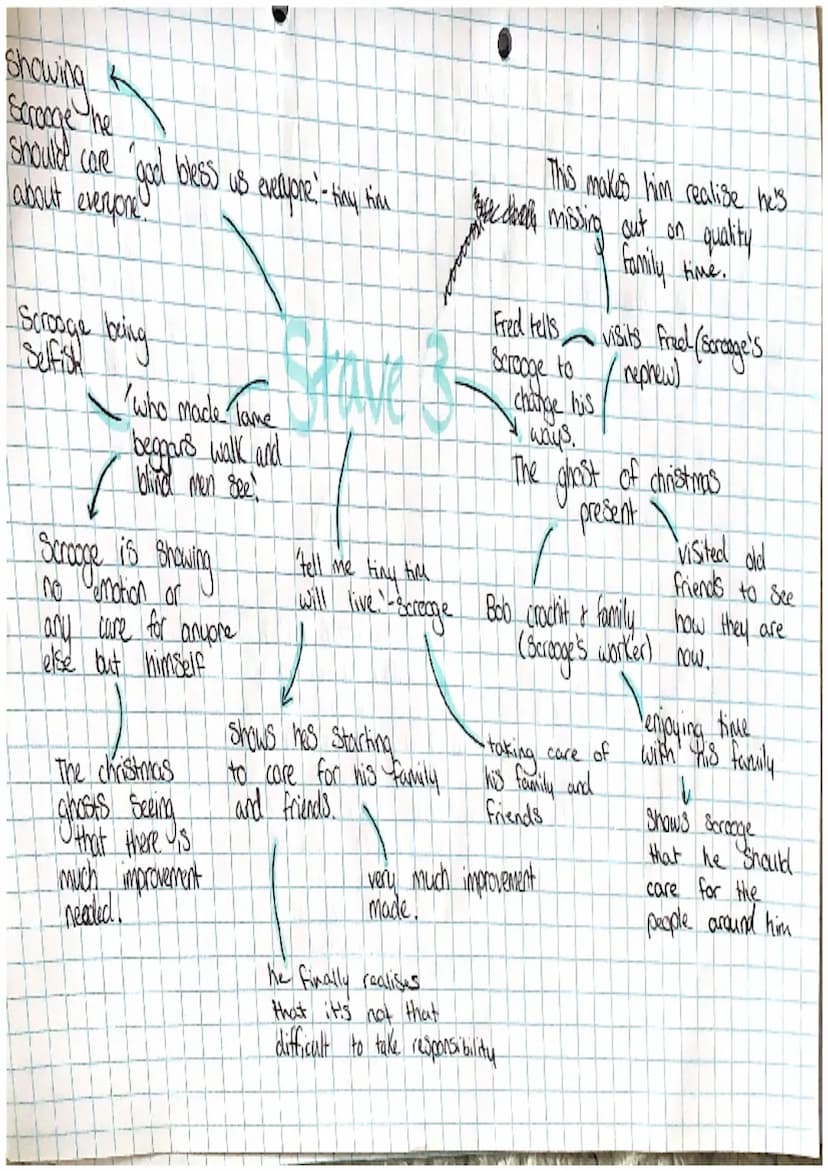 Showing
Scrooge he
should care
about everyone.
'god bless us everyone.' - tiny tim
This makes him realise he's
missing out on quality
family time.
Scrooge being
Selfish
Stave 3
Fred tells
Scrooge to
change his
ways.
visits Fred (Scrooge's
nephew)
'who made lame
beggars walk and
blind men see.'
The ghost of christmas
present
Scrooge is showing
no emotion or
any care for anyone
else but himself
'tell me tiny tim
will live.' - Scrooge
Bob crachit & family
(Scrooge's worker)
visited old
friends to see
how they are
now.
The christmas
ghosts seeing
that there is
much improvement
needed.
Shows hes starting
to care for his family
and friends.
taking care of
his family and
friends
enjoying time
with his family
Shows Scrooge
that he should
care for the
people around him
very much improvement
made.
he finally realises
that it's not that
difficult to take responsibility